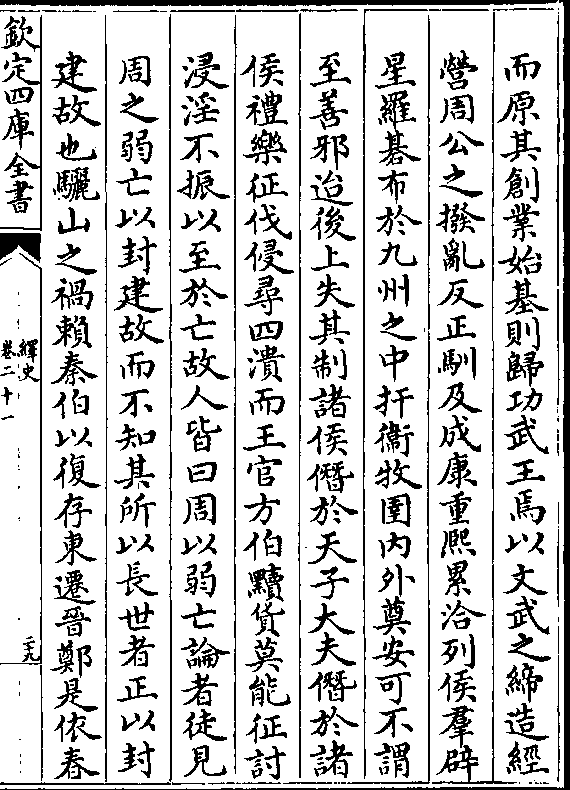 而原其創業始基則歸功武王焉以文武之締造經
營周公之撥亂反正馴及成康重熙累洽列侯羣辟
星羅碁布於九州之中扞衞牧圉内外奠安可不謂
至善邪迨後上失其制諸侯僭於天子大夫僭於諸
侯禮樂征伐侵尋四潰而王官方伯黷貨莫能征討
浸淫不振以至於亡故人皆曰周以弱亡論者徒見
周之弱亡以封建故而不知其所以長世者正以封
建故也驪山之禍賴秦伯以復存東遷晉鄭是依春
欽定四庫全書
繹史
卷二十一
二九